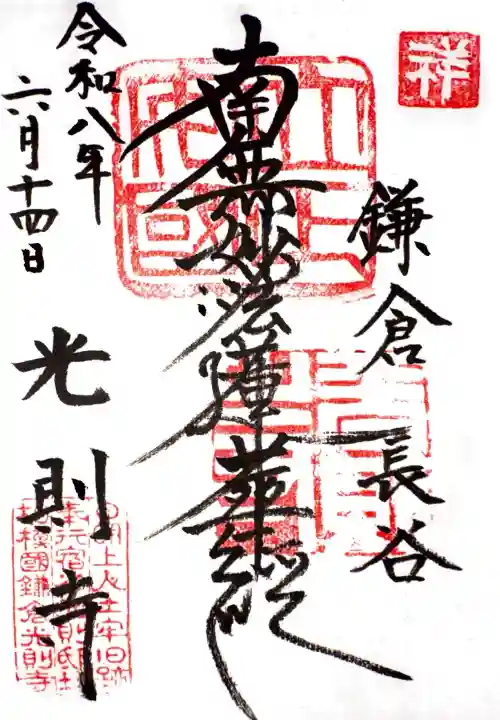 祥
鎌倉長谷
立正
安國
南無妙法蓮華経
令和八年
六月十四日
光則寺
日朗上人土牢旧跡
相模國鎌倉光則寺